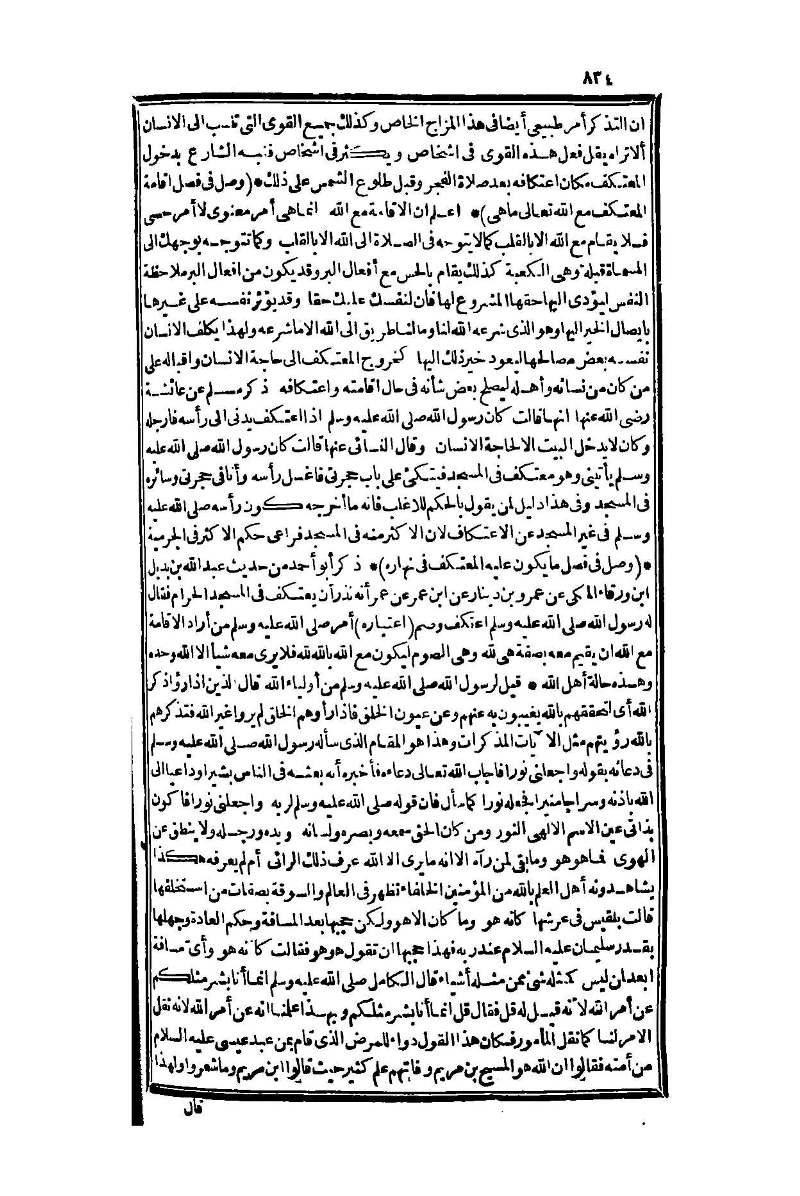 ٨٣٤
ان التذكر أمر طبيعي أيضا في هذا المزاج الخاص وكذلك جميع القوى التي تنسب الى الانسان
ألا تراه يقل فعل هذه القوى في اشخاص ويكثر في اشخاص فنبه الشارع بدخول
المعتكف مكان اعتكافه بعد صلاة الفجر وقبل طلوع الشمس على ذلك *(وصل في فصل اقامة
المعتكف مع الله تعالى ماهى)* اعلم ان الاقامة مع الله انما هى أمر معنوى لا أمر حسى
فلا يقام مع الله الا بالقلب كما لا يتوجه في الصلاة الى الله الا بالقلب وكما تتوجه بوجهك الى
المسماة قبلة وهى الكعبة كذلك يقام بالحس مع أفعال البر وقد يكون من افعال البر ملاحظة
النفس ليؤدى اليها حقها المشروع لها فان لنفسك عليك حقا وقد يؤثر نفسه على غيرها
بايصال الخير اليها وهو الذى شرعه الله لنا وما لنا طريق الى الله الا ما شرعه ولهذا يكلف الانسان
نفسه بعض مصالحها ليعود خير ذلك اليها كخروج المعتكف الى حاجة الانسان واقباله على
من كان من نسائه وأهله ليصلح بعض شأنه في حال اقامته واعتكافه ذكر مسلم عن عائشة
رضى الله عنها انها قالت كان رسول الله صلى الله عليه وسلم اذا اعتكف يدنى الى رأسه فارجله
وكان لا يدخل البيت الا لحاجة الانسان وقال النسائى عنها قالت كان رسول الله صلى الله عليه
وسلم يأتينى وهو معتكف في المسجد فيتكئ على باب حجرتى فاغسل رأسه وأنا في حجرتى وسائره
في المسجد وفي هذا دليل لمن يقول بالحكم للاغلب فانه ما أخرجه كون رأسه صلى الله عليه
وسلم في غير المسجد عن الاعتكاف لان الاكثر منه في المسجد فراعى حكم الاكثر في الجرمية
*(وصل في فصل ما يكون عليه المعتكف في نهاره)* ذكر أبو أحمد من حديث عبد الله بن بديل
ابن ورقاء المكى عن عمرو بن دينار عن ابن عمر عن عمر أنه نذر أن يعتكف في المسجد الحرام فقال
له رسول الله صلى الله عليه وسلم اعتكف وصم (اعتباره) أمر صلى الله عليه وسلم من أراد الاقامة
مع الله ان يقيم معه بصفة هى لله وهى الصوم ليكون مع الله بالله لله فلا يرى معه شيأ الا الله وحده
وهذه حالة أهل الله * قيل لرسول الله صلى الله عليه وسلم من أولياء الله قال الذين اذا رؤا ذكر
الله أى لتحققهم بالله يغيبون به عنهم وعن عيون الخلق فاذا رأوهم الخلق لم يروا غير الله فتذكرهم
بالله رؤيتهم مثل الآيات المذكرات وهذا هو المقام الذى سأله رسول الله صلى الله عليه وسلم
في دعائه بقوله واجعلنى نورا فاجاب الله تعالى دعاءه فأخبره أنه بعثه في الناس بشيرا وداعيا الى
الله باذنه وسراجا منيرا فجعله نورا كما سأل فان قوله صلى الله عليه وسلم لربه واجعلنى نورا فاكون
بذاتى عين الاسم الالهى النور ومن كان الحق سمعه وبصره ولسانه ويده ورجله ولا ينطق عن
الهوى فما هو هو وما بقى لمن رآه الا انه ما يرى الا الله عرف ذلك الرائى أم لم يعرفه هكذا
يشاهدونه أهل العلم بالله من المؤمنين الخلفاء تظهر في العالم والسوقة بصفات من استخلفها
قالت بلقيس في عرشها كانه هو وما كان الا هو ولكن حجبها بعد المسافة وحكم العادة وجهلها
بقدر سليمان عليه السلام عند ربه فهذا حجبها ان تقول هو هو فقالت كانه هو وأى مسافة
ابعد ان ليس كمثله شئ ممن مثله أشياء قال الكامل صلى الله عليه وسلم انما أنا بشر مثلكم
عن أمر الله لانه قيل له قل فقال قل انما أنا بشر مثلكم وبهذا علمنا انه عن أمر الله لانه نقل
الامر لنا كما نقل المأمور فكان هذا القول دواء للمرض الذى قام بمن عبد عيسى عليه السلام
من أمته فقالوا ان الله هو المسيح بن مريم وفاتهم علم كثير حيث قالوا ابن مريم وما شعروا ولهذا
قال